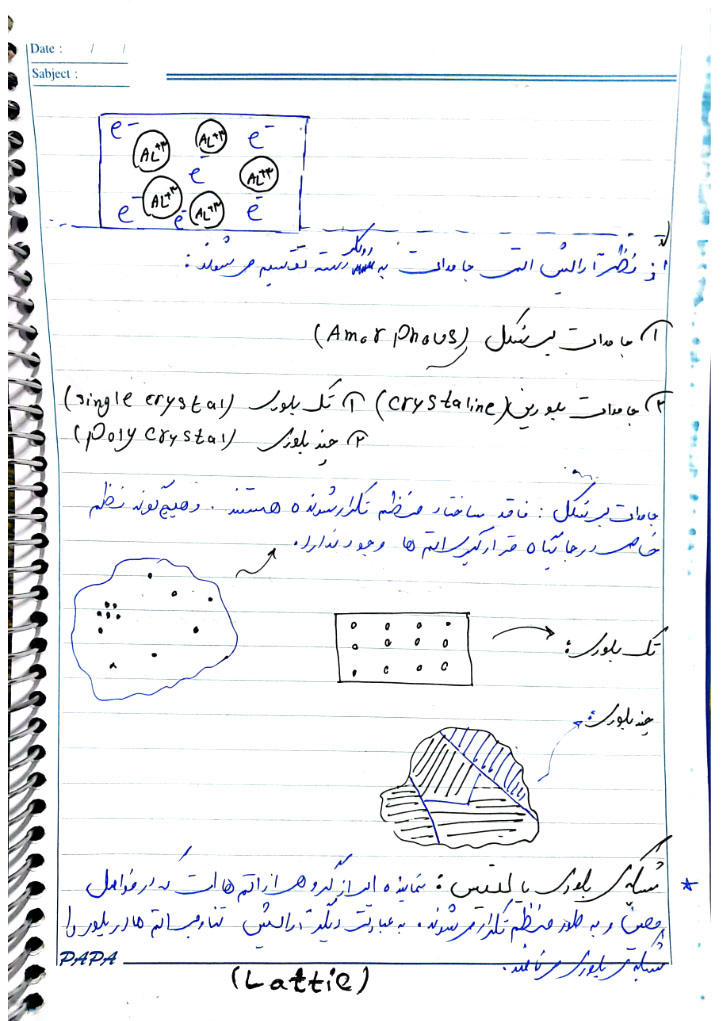 Date : / /
Sabject :
e⁻ AL⁺³ AL⁺³ e⁻
e AL⁺³
e⁻ AL⁺³ e⁻ AL⁺³ e⁻
از نظر آرایش اتمی جامدات به دو دسته تقسیم می شوند:
① جامدات بی شکل (Amorphous)
② جامدات بلورین (crystaline) ① تک بلوری (single crystal)
② چند بلوری (poly crystal)
جامدات بی شکل : فاقد ساختار منظم تکرار شونده هستند . و هیچ گونه نظم
خاصی در جایگاه قرارگیری اتم ها وجود ندارد.
تک بلوری:
چند بلوری:
* شبکه ی بلوری یا لتیس : نماینده ای از گروهی از اتم ها است که در فواصل
معین و به طور منظم تکرار می شوند. به عبارت دیگر آرایش تناوبی اتم ها در بلور را
شبکه ی بلوری می نامند.
PAPA
(Lattie)